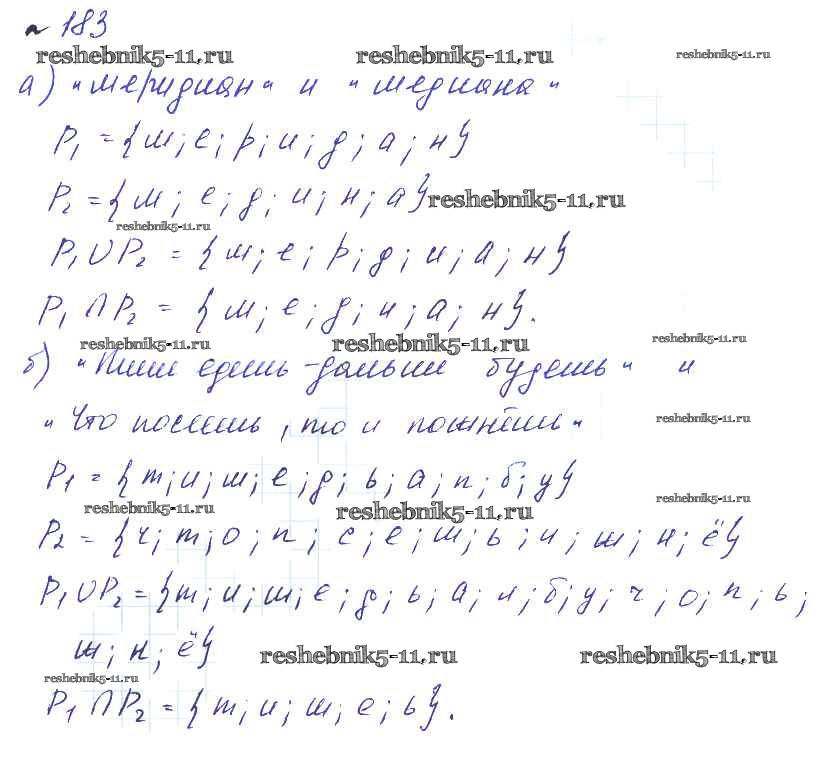 № 183
reshebnik5-11.ru reshebnik5-11.ru reshebnik5-11.ru
а) "меридиан" и "медиана"
P₁ = {м; е; р; и; д; а; н}
P₂ = {м; е; д; и; н; а} reshebnik5-11.ru
reshebnik5-11.ru
P₁ ∪ P₂ = {м; е; р; д; и; а; н}
P₁ ∩ P₂ = {м; е; д; и; а; н}.
reshebnik5-11.ru reshebnik5-11.ru reshebnik5-11.ru
б) "Тише едешь - дальше будешь" и
"Что посеешь, то и пожнёшь" reshebnik5-11.ru
P₁ = {т; и; ш; е; д; ь; а; л; б; у}
reshebnik5-11.ru reshebnik5-11.ru reshebnik5-11.ru
P₂ = {ч; т; о; п; с; е; ш; ь; и; ж; н; ё}
P₁ ∪ P₂ = {т; и; ш; е; д; ь; а; л; б; у; ч; о; п; ь;
ж; н; ё} reshebnik5-11.ru reshebnik5-11.ru
reshebnik5-11.ru
P₁ ∩ P₂ = {т; и; ш; е; ь}.